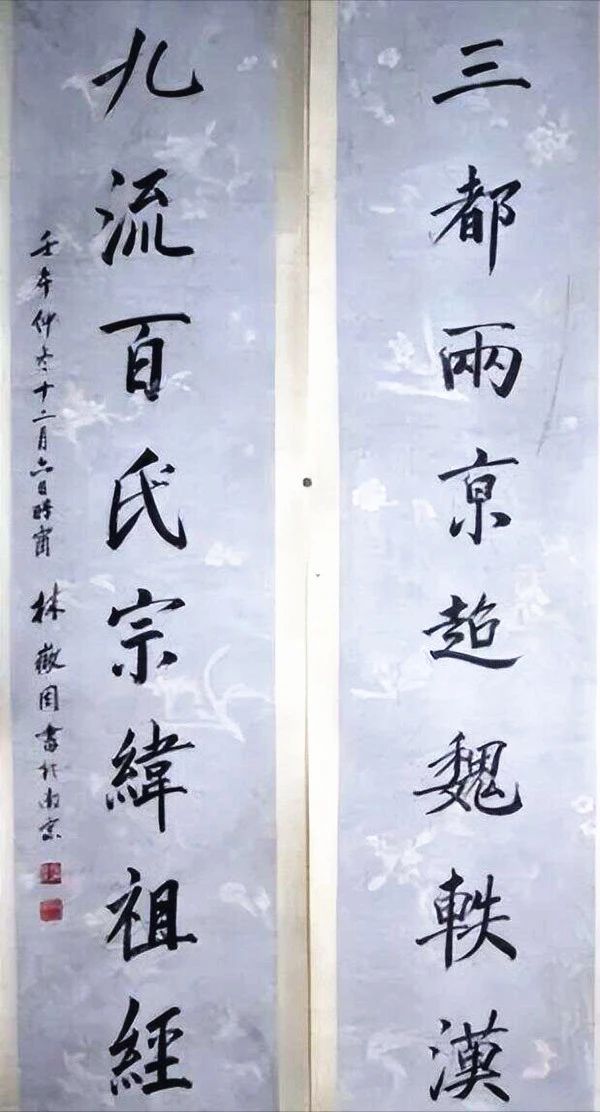 三都兩京超魏軼漢
九流百氏宗緯祖經
壬午仲冬十二月六日時林徽因書於南京